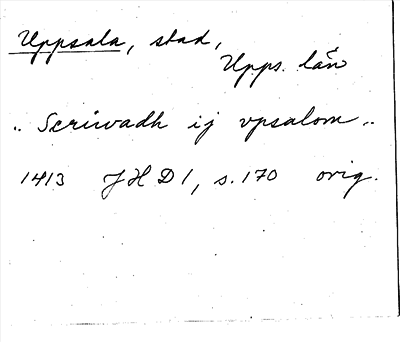 Uppsala, stad,
Upps. län
"Scriwadh ij vpsalom"
1413 JHD 1, s. 170 orig.